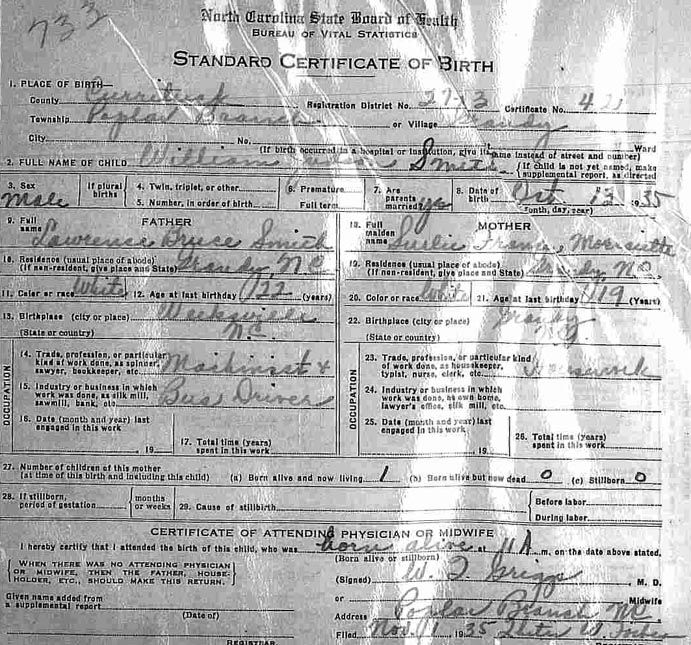 733
North Carolina State Board of Health
BUREAU OF VITAL STATISTICS
STANDARD CERTIFICATE OF BIRTH
1. PLACE OF BIRTH—
County Currituck Registration District No. 27-13 Certificate No.
Township Poplar Branch or Village Grandy
City No. Ward
(If birth occurred in a hospital or institution, give its name instead of street and number)
2. FULL NAME OF CHILD William Smith { If child is not yet named, make supplemental report, as directed
3. Sex Male If plural births 4. Twin, triplet, or other 5. Number, in order of birth 6. Premature Full term 7. Are parents married? yes 8. Date of birth Oct 13 1935 (Month, day, year)
9. Full name FATHER Lawrence Bruce Smith
10. Residence (usual place of abode) (If non-resident, give place and State) Grandy, N.C.
11. Color or race White 12. Age at last birthday 22 (years)
13. Birthplace (city or place) Weeksville
(State or country) N.C.
OCCUPATION
14. Trade, profession, or particular kind of work done, as spinner, sawyer, bookkeeper, etc. Machinist &
15. Industry or business in which work was done, as silk mill, sawmill, bank, etc. Bus Driver
16. Date (month and year) last engaged in this work , 19
17. Total time (years) spent in this work
18. Full maiden name MOTHER Frances
19. Residence (usual place of abode) (If non-resident, give place and State) Grandy N.C.
20. Color or race White 21. Age at last birthday 19 (Years)
22. Birthplace (city or place) Grandy
(State or country) N.C.
OCCUPATION
23. Trade, profession, or particular kind of work done, as housekeeper, typist, nurse, clerk, etc. Housework
24. Industry or business in which work was done, as own home, lawyer's office, silk mill, etc.
25. Date (month and year) last engaged in this work , 19
26. Total time (years) spent in this work
27. Number of children of this mother
(at time of this birth and including this child) (a) Born alive and now living 1 (b) Born alive but now dead 0 (c) Stillborn 0
28. If stillborn, period of gestation { months or weeks 29. Cause of stillbirth { Before labor During labor
CERTIFICATE OF ATTENDING PHYSICIAN OR MIDWIFE
I hereby certify that I attended the birth of this child, who was born alive at 11 A. m. on the date above stated,
(Born alive or stillborn)
{ WHEN THERE WAS NO ATTENDING PHYSICIAN OR MIDWIFE, THEN THE FATHER, HOUSEHOLDER, ETC., SHOULD MAKE THIS RETURN. }
(Signed) W. T. Griggs, M. D.
or Midwife
Given name added from a supplemental report
(Date of)
Address Poplar Branch NC
Filed Nov. 1 1935
REGISTRAR.